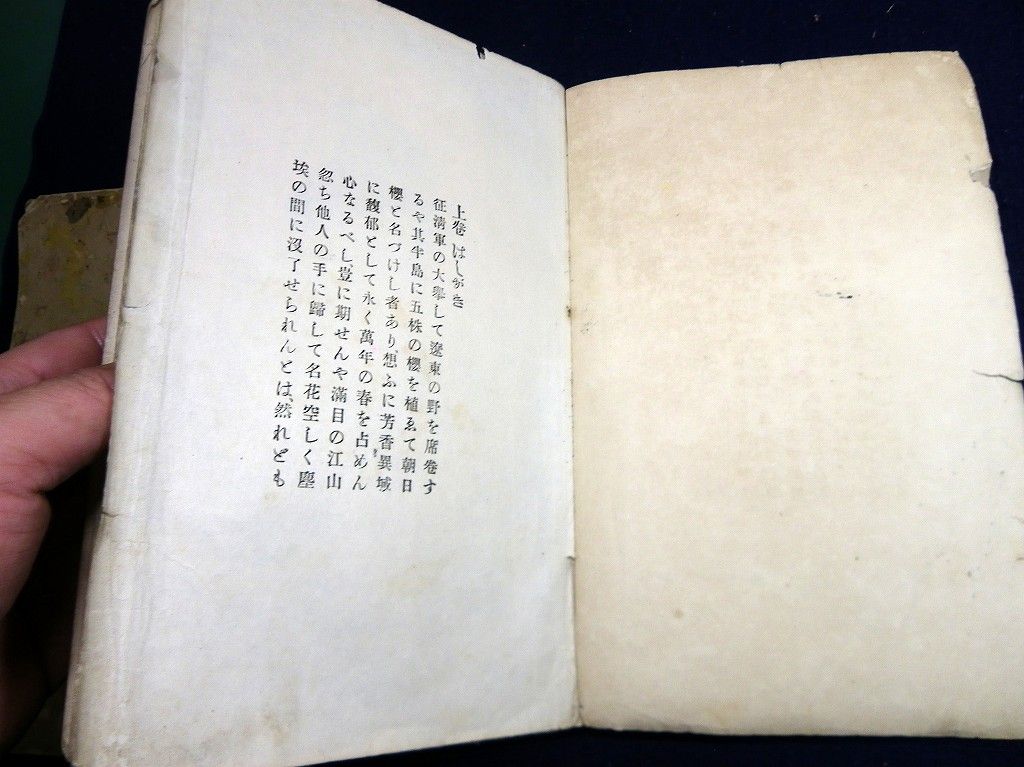 上卷 はしがき
征淸軍の大擧して遼東の野を席卷す
るや其半島に五株の櫻を植ゑて朝日
櫻と名づけし者あり、想ふに芳香異域
に馥郁として永く萬年の春を占めん
心なるべし、豈に期せんや滿目の江山
忽ち他人の手に歸して名花空しく塵
埃の間に沒了せられんとは、然れども